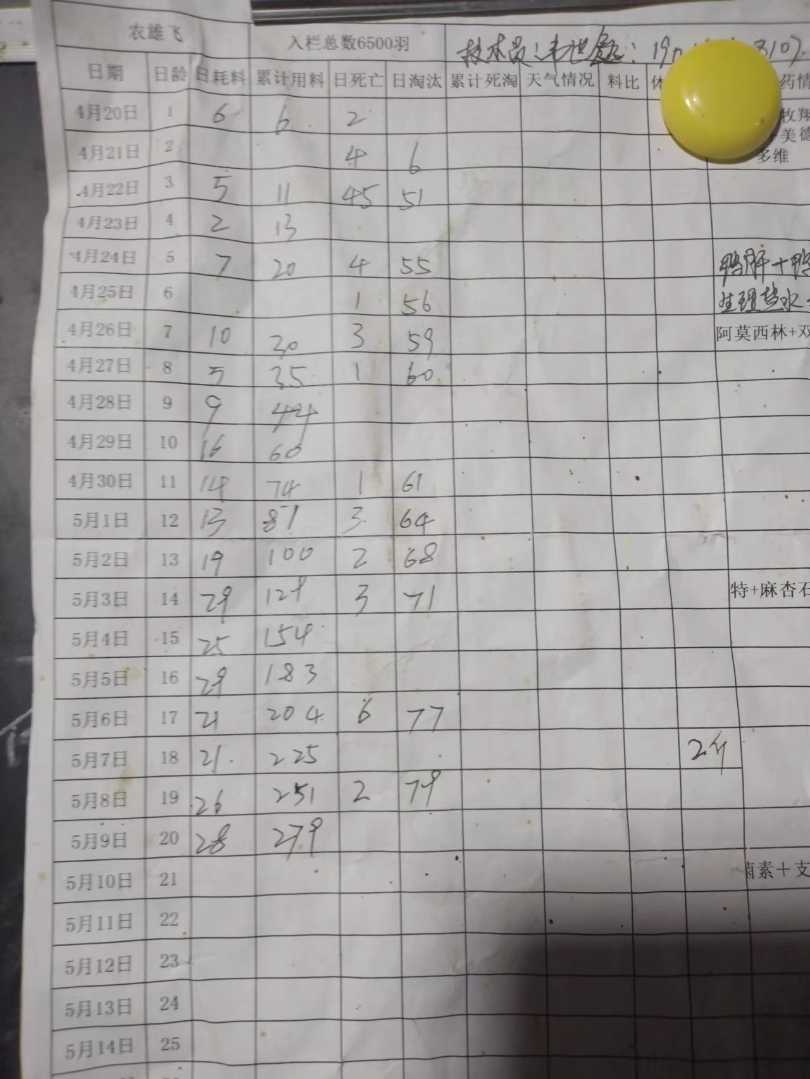 农雄飞 入栏总数6500羽 技术员:韦世
日期 日龄 日耗料 累计用料 日死亡 日淘汰 累计死淘 天气情况 料比 体 药情
4月20日 1 6 6 2 牧翔
美德
4月21日 2 4 6 多维
4月22日 3 5 11 45 51
4月23日 4 2 13
4月24日 5 7 20 4 55 鸭肝+鸭
4月25日 6 1 56 生理盐水
4月26日 7 10 30 3 59 阿莫西林+双
4月27日 8 5 35 1 60
4月28日 9 9 44
4月29日 10 16 60
4月30日 11 14 74 1 61
5月1日 12 13 87 3 64
5月2日 13 19 100 2 68
5月3日 14 29 129 3 71 特+麻杏石
5月4日 15 25 154
5月5日 16 29 183
5月6日 17 21 204 6 77
5月7日 18 21 225 2斤
5月8日 19 26 251 2 79
5月9日 20 28 279
5月10日 21 菌素+支
5月11日 22
5月12日 23
5月13日 24
5月14日 25